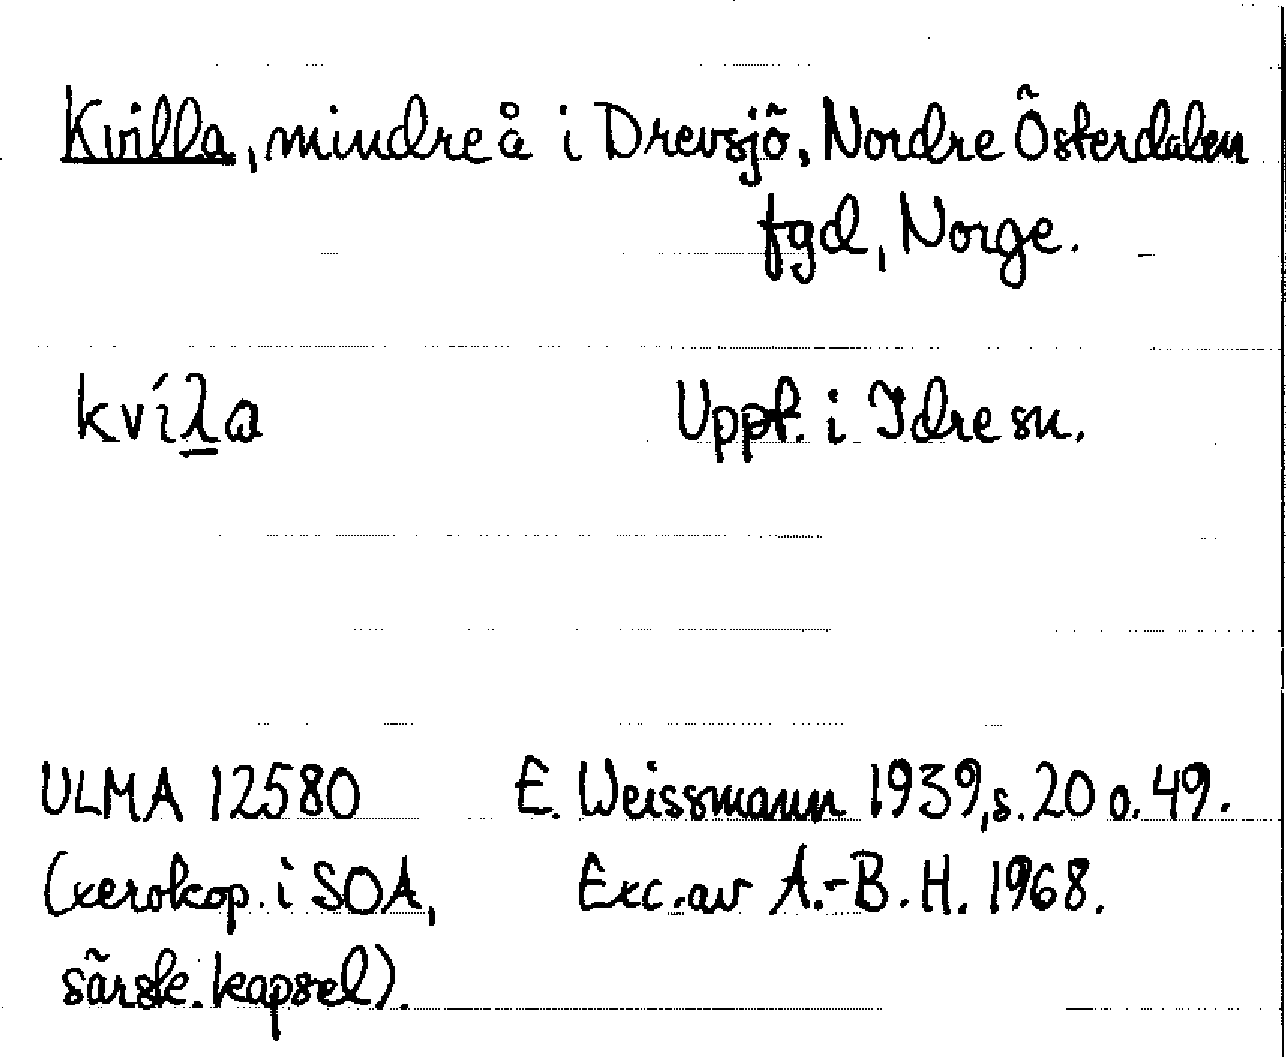 Kvilla, mindre å i Drevsjö, Nordre Österdalen
fgd, Norge.
kvíλ̲a Uppt. i Idre sn.
ULMA 12580 E. Weissmann 1939, s. 20 o. 49.
(xerokop. i SOA, Exc. av A.-B. H. 1968.
särsk. kapsel).